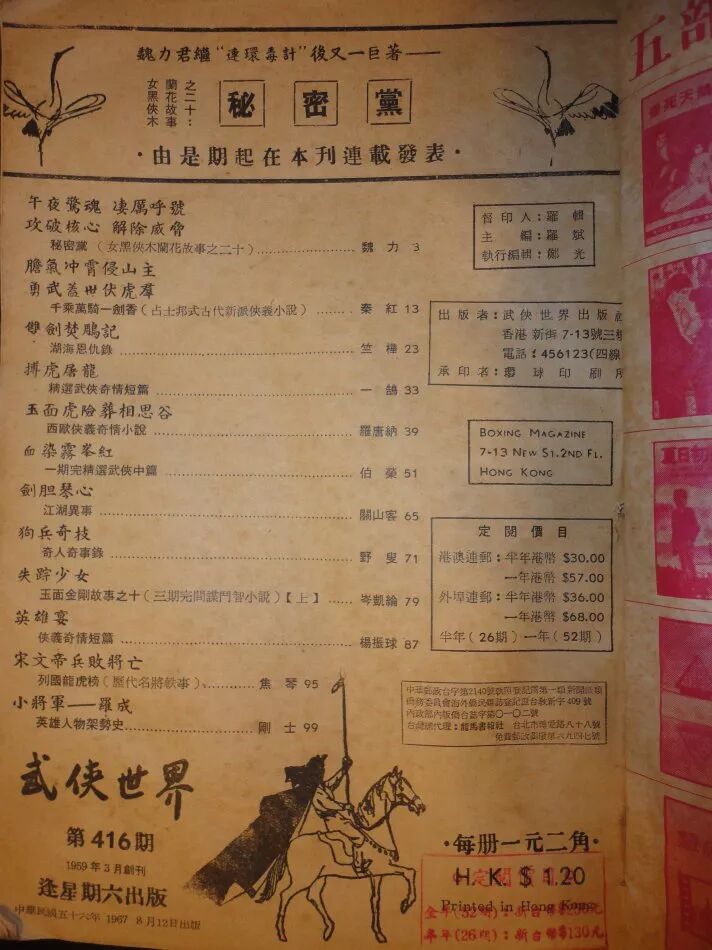 魏力君繼“連環毒計”後又一巨著——
女黑俠木
蘭花故事
之二十：
秘密黨
·由是期起在本刊連載發表·
午夜驚魂 凄厲呼號
攻破核心 解除威脅
秘密黨（女黑俠木蘭花故事之二十） 魏力 3
膽氣冲霄侵山主
勇武蓋世伏虎羣
千乘萬騎一劍香（占士邦式古代新派俠義小說） 秦紅 13
雙劍焚鵰記
湖海恩仇錄 竺樺 23
搏虎屠龍
精選武俠奇情短篇 一鵠 33
玉面虎險葬相思谷
西歐俠義奇情小說 羅唐納 39
血染霧峯紅
一期完精選武俠中篇 伯榮 51
劍胆琴心
江湖異事 關山客 65
狗兵奇技
奇人奇事錄 野叟 71
失踪少女
玉面金剛故事之十（三期完間諜鬥智小說）【上】 岑凱綸 79
英雄宴
俠義奇情短篇 楊振球 87
宋文帝兵敗將亡
列國龍虎榜（歷代名將軼事） 焦琴 95
小將軍——羅成
英雄人物架勢史 剛士 99
督印人：羅輯
主編：羅斌
執行編輯：鄭光
出版者：武俠世界出版
香港新街7-13號三樓
電話：456123(四線
承印者：環球印刷所
BOXING MAGAZINE
7-13 NEW ST. 2ND FL.
HONG KONG
定閱價目
港澳連郵：半年港幣 $30.00
一年港幣 $57.00
外埠連郵：半年港幣 $36.00
一年港幣 $68.00
半年（26期）一年（52期）
中華郵政台字第2140號執照登記為第一類新聞紙類
僑務委員會海外僑民雜誌登記證台秋新字409號
內政部內版僑台誌字第〇一〇二號
武俠世界
第416期
1959年3月創刊
逢星期六出版
中華民國五十六年 1967 8月12日出版
·每册一元二角·
H. K. $ 1.20
Printed in Hong Kong
定閱
全年(52期)：新台幣
半年(26期)：新台幣$130元
五部